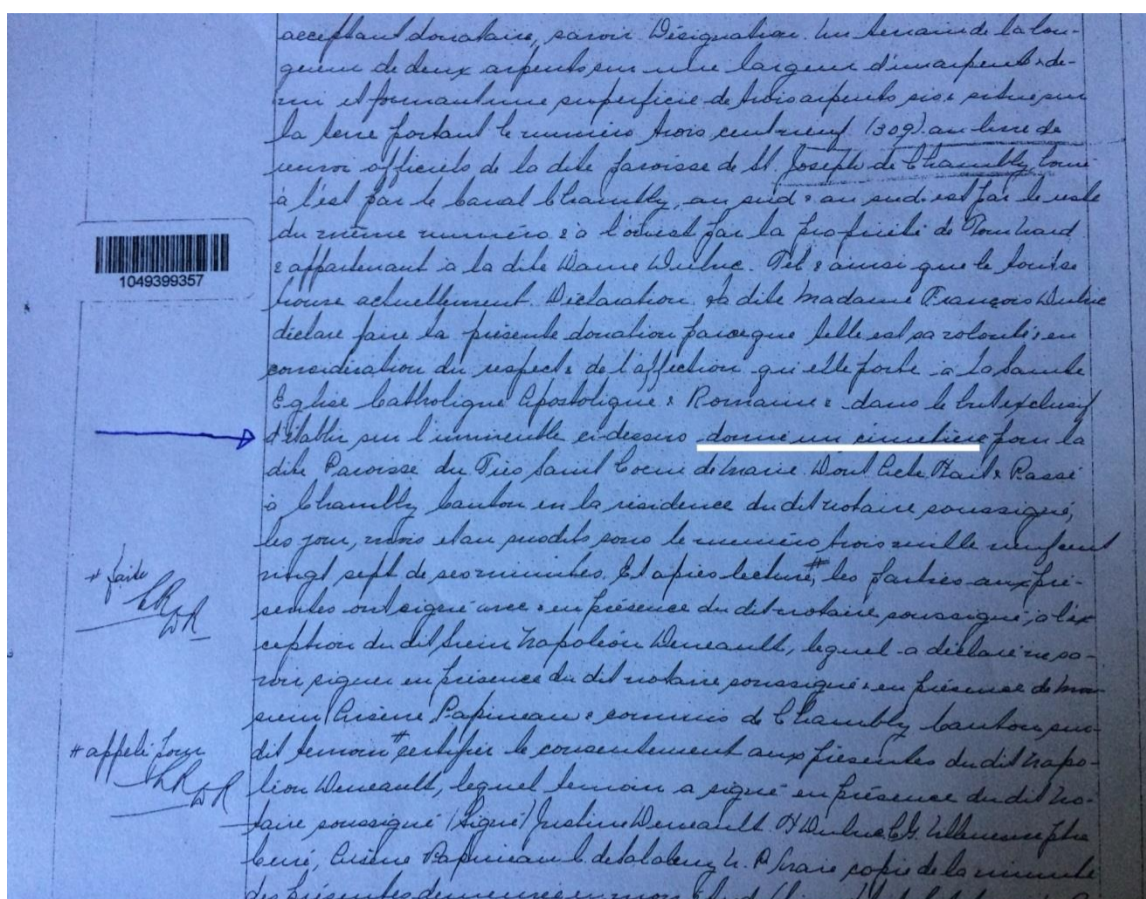 acceptant donataire, savoir Désignation. Un terrain de la lon-
gueur de deux arpents sur une largeur d'un arpent & de-
mi et formant une superficie de trois arpents sis & situé sur
la terre portant le numéro trois cent neuf (309) au livre de
renvoi officiels de la dite paroisse de St. Joseph de Chambly borné
à l'est par le Canal Chambly, au sud & au sud-est par le reste
du même numéro & à l'ouest par la propriété de
& appartenant à la dite Dame Dulac. Tel & ainsi que le tout se
trouve actuellement. Déclaration. La dite Madame François Dulac
déclare faire la présente donation parceque telle est sa volonté, en
considération du respect & de l'affection qu'elle porte à la Sainte
Eglise Catholique Apostolique & Romaine & dans le but exclusif
d'établir sur l'immeuble ci-dessus donné un cimetière pour la
dite Paroisse du Très Saint Coeur de Marie Dont Acte Fait & Passé
à Chambly Canton en la résidence du dit notaire soussigné,
les jour, mois et an susdits sous le numéro trois mille neuf cent
vingt sept de ses minutes. Et après lecture #, les parties aux pré-
sentes ont signé avec & en présence du dit notaire soussigné, à l'ex
ception du dit Sieur Napoléon Deneault, lequel a déclaré ne sa-
voir signer en présence du dit notaire soussigné & en présence de Mon
sieur Papineau & commis de Chambly Canton sus-
dit témoin # certifier le consentement aux présentes du dit Napo-
léon Deneault, lequel témoin a signé en présence du dit No-
taire soussigné (Signé) Justine Deneault.
Curé, Papineau N. P. Vraie copie de la minute
des présentes demeurée en mon
1049399357
# faite
# appelé pour